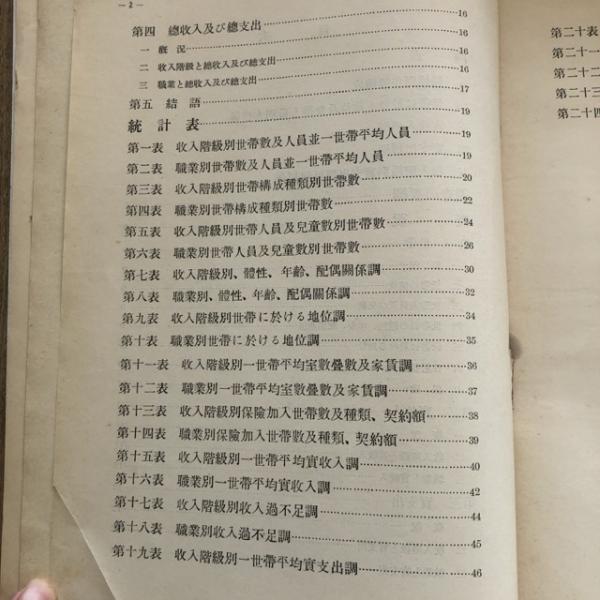 — 2 —
第四 總收入及び總支出……16
一 概況……16
二 收入階級と總收入及び總支出……16
三 職業と總收入及び總支出……17
第五 結語……19
統計表……19
第一表 收入階級別世帶數及人員並一世帶平均人員……19
第二表 職業別世帶數及人員並一世帶平均人員……19
第三表 收入階級別世帶構成種類別世帶數……20
第四表 職業別世帶構成種類別世帶數……22
第五表 收入階級別世帶人員及兒童數別世帶數……24
第六表 職業別世帶人員及兒童數別世帶數……26
第七表 收入階級別、體性、年齡、配偶關係調……30
第八表 職業別、體性、年齡、配偶關係調……32
第九表 收入階級別世帶に於ける地位調……34
第十表 職業別世帶に於ける地位調……35
第十一表 收入階級別一世帶平均室數疊數及家賃調……36
第十二表 職業別一世帶平均室數疊數及家賃調……37
第十三表 收入階級別保險加入世帶數及種類、契約額……38
第十四表 職業別保險加入世帶數及種類、契約額……39
第十五表 收入階級別一世帶平均實收入調……40
第十六表 職業別一世帶平均實收入調……42
第十七表 收入階級別收入過不足調……44
第十八表 職業別收入過不足調……45
第十九表 收入階級別一世帶平均實支出調……46
第二十表
第二十一
第二十二
第二十三
第二十四